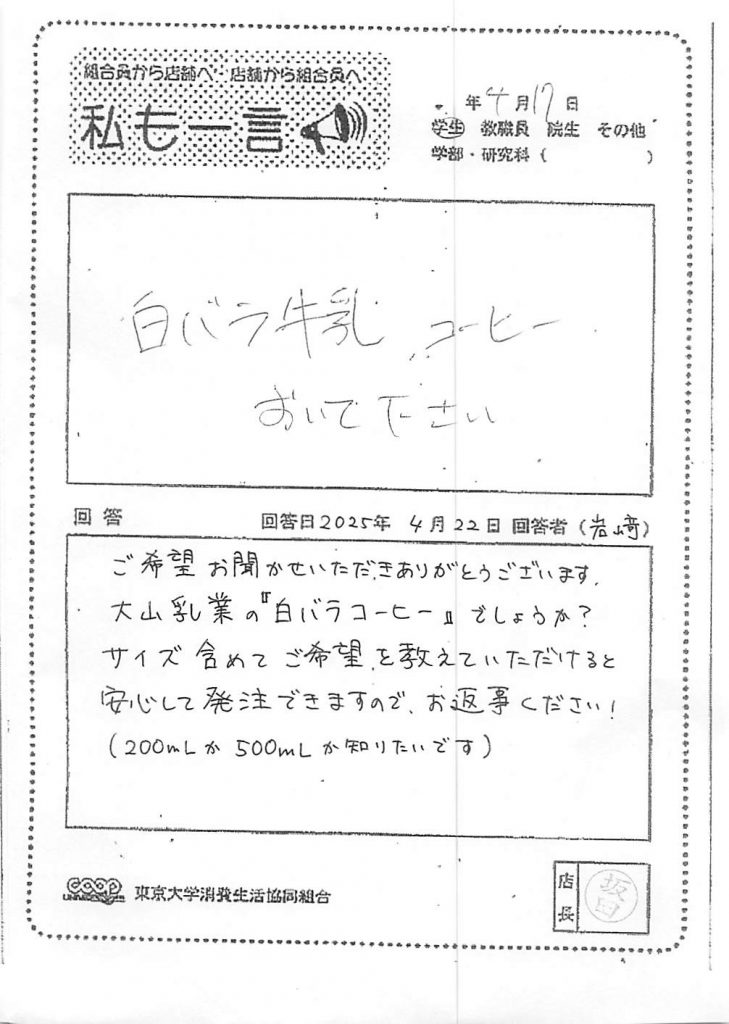 組合員から店舗へ・店舗から組合員へ
私も一言
年4月17日
学生 教職員 院生 その他
学部・研究科( )
白バラ牛乳 コーヒー
おいて下さい
回答 回答日2025年 4月22日 回答者(岩﨑)
ご希望お聞かせいただきありがとうございます。
大山乳業の『白バラコーヒー』でしょうか?
サイズ含めてご希望を教えていただけると
安心して発注できますので、お返事ください!
(200mLか500mLか知りたいです)
coop 東京大学消費生活協同組合
店長 坂田